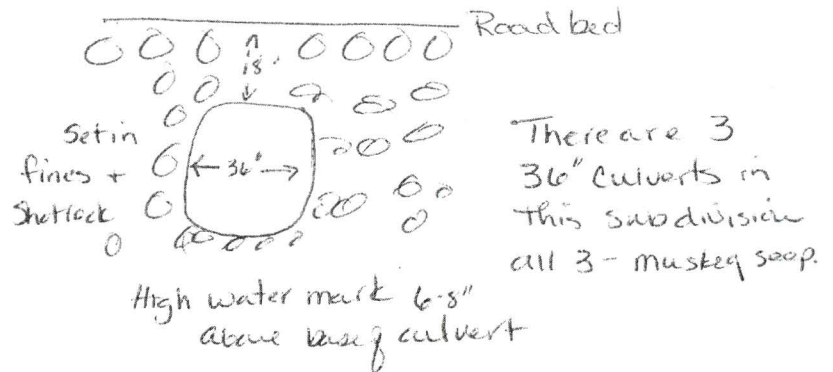 Road bed
18"
Set in
fines +
Shotrock
36"
There are 3
36" Culverts in
this subdivision
all 3 - muskeg seep.
High water mark 6-8"
above base of culvert